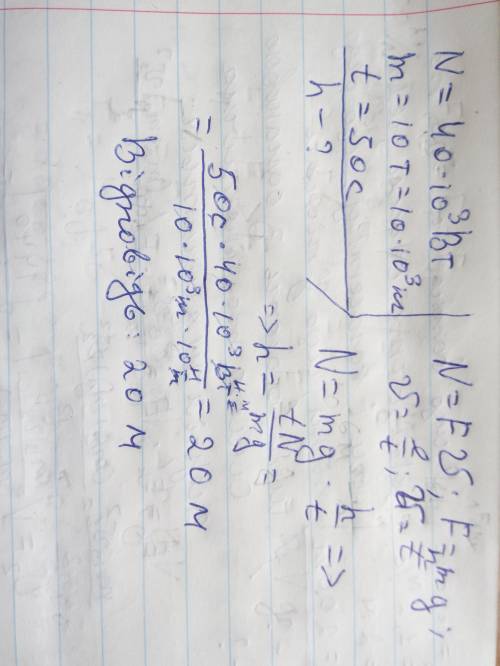 N = 40·10³ Вт
m = 10 т = 10·10³ м
t = 50 с
h - ?
N = F𝒱; F = mg;
𝒱 = ℓ/t; 𝒱 = h/t
N = mg · h/t =>
=> h = tN/mg =
= 50с · 40·10³ / 10·10³ м · 10 Н/м = 20 м
Відповідь: 20 м